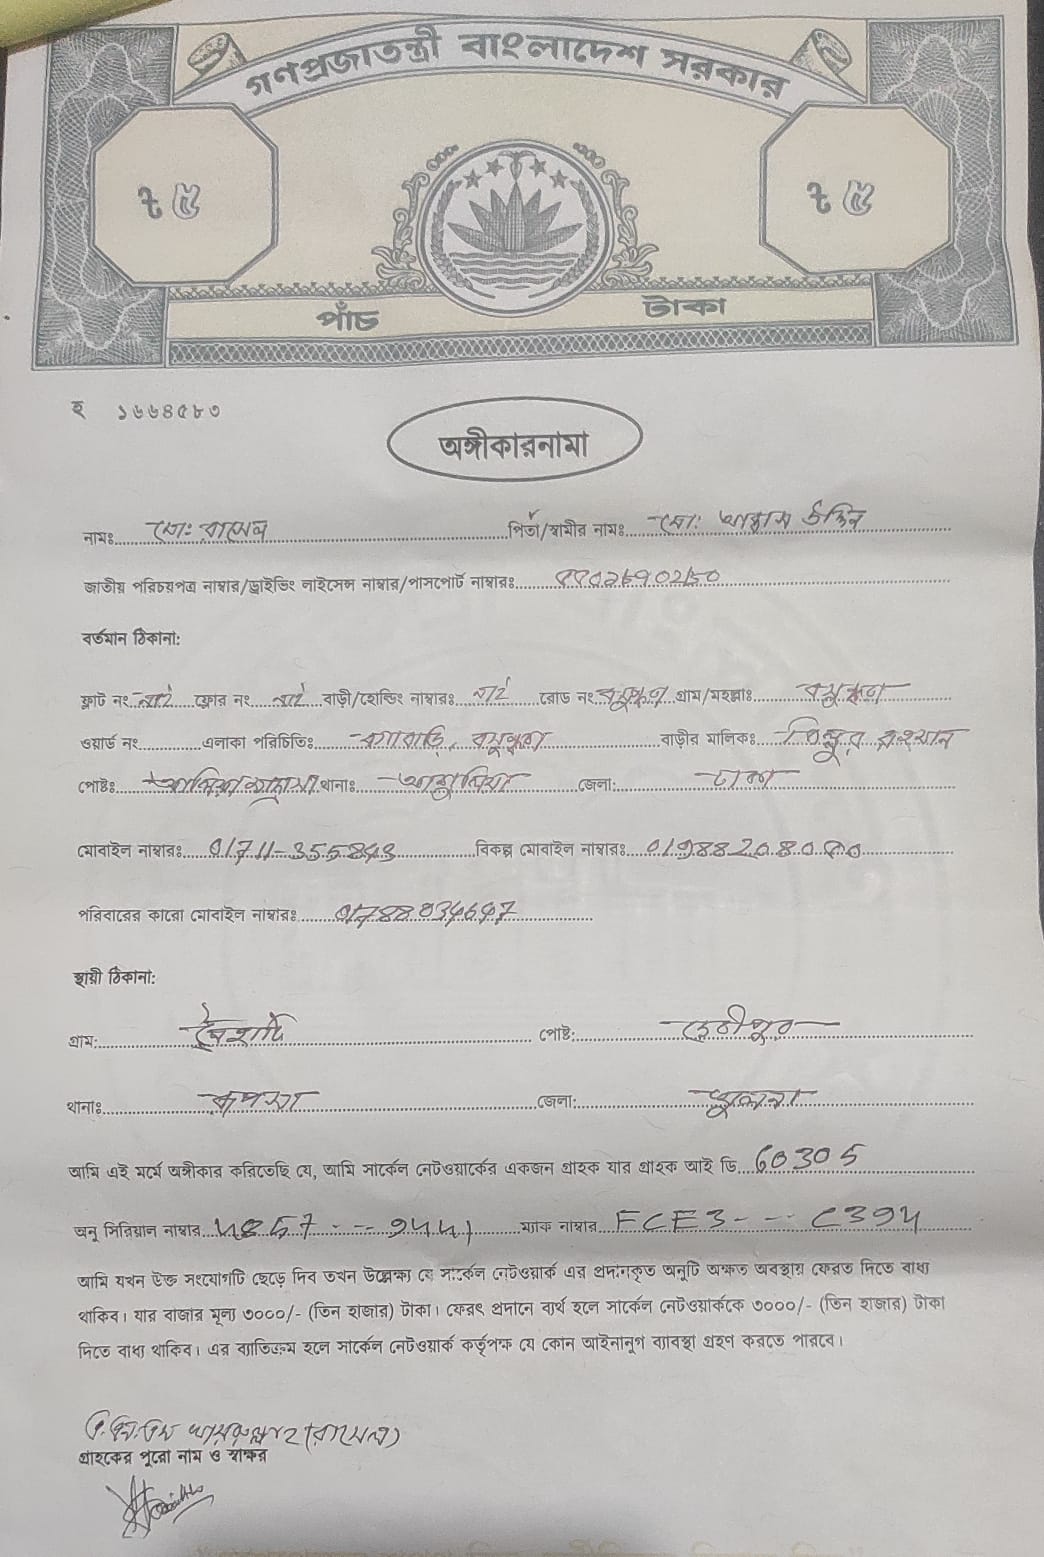 গণপ্রজাতন্ত্রী বাংলাদেশ সরকার
৳ ৫ ৳ ৫
পাঁচ টাকা
হ ১৬৬৪৫৮৩
অঙ্গীকারনামা
নামঃ মোঃ রাসেল পিতা/স্বামীর নামঃ মোঃ উদ্দিন
জাতীয় পরিচয়পত্র নাম্বার/ড্রাইভিং লাইসেন্স নাম্বার/পাসপোর্ট নাম্বারঃ
বর্তমান ঠিকানা:
ফ্লাট নং নাই ফ্লোর নং নাই বাড়ী/হোল্ডিং নাম্বারঃ নাই রোড নং গ্রাম/মহল্লাঃ
ওয়ার্ড নং এলাকা পরিচিতিঃ বাড়ীর মালিকঃ রহমান
পোষ্টঃ থানাঃ আশুলিয়া জেলা: ঢাকা
মোবাইল নাম্বারঃ 01711-355843 বিকল্প মোবাইল নাম্বারঃ
পরিবারের কারো মোবাইল নাম্বারঃ
স্থায়ী ঠিকানা:
গ্রাম: নৈহাটি পোষ্ট:
থানাঃ রূপসা জেলা: খুলনা
আমি এই মর্মে অঙ্গীকার করিতেছি যে, আমি সার্কেল নেটওয়ার্কের একজন গ্রাহক যার গ্রাহক আই ডি 60305
অনু সিরিয়াল নাম্বার ম্যাক নাম্বার FCE3---C394
আমি যখন উক্ত সংযোগটি ছেড়ে দিব তখন উল্লেক্ষ্য যে সার্কেল নেটওয়ার্ক এর প্রদানকৃত অনুটি অক্ষত অবস্থায় ফেরত দিতে বাধ্য
থাকিব। যার বাজার মূল্য ৩০০০/- (তিন হাজার) টাকা। ফেরৎ প্রদানে ব্যর্থ হলে সার্কেল নেটওয়ার্ককে ৩০০০/- (তিন হাজার) টাকা
দিতে বাধ্য থাকিব। এর ব্যতিক্রম হলে সার্কেল নেটওয়ার্ক কর্তৃপক্ষ যে কোন আইনানুগ ব্যবস্থা গ্রহণ করতে পারবে।
(রাসেল)
গ্রাহকের পুরো নাম ও স্বাক্ষর